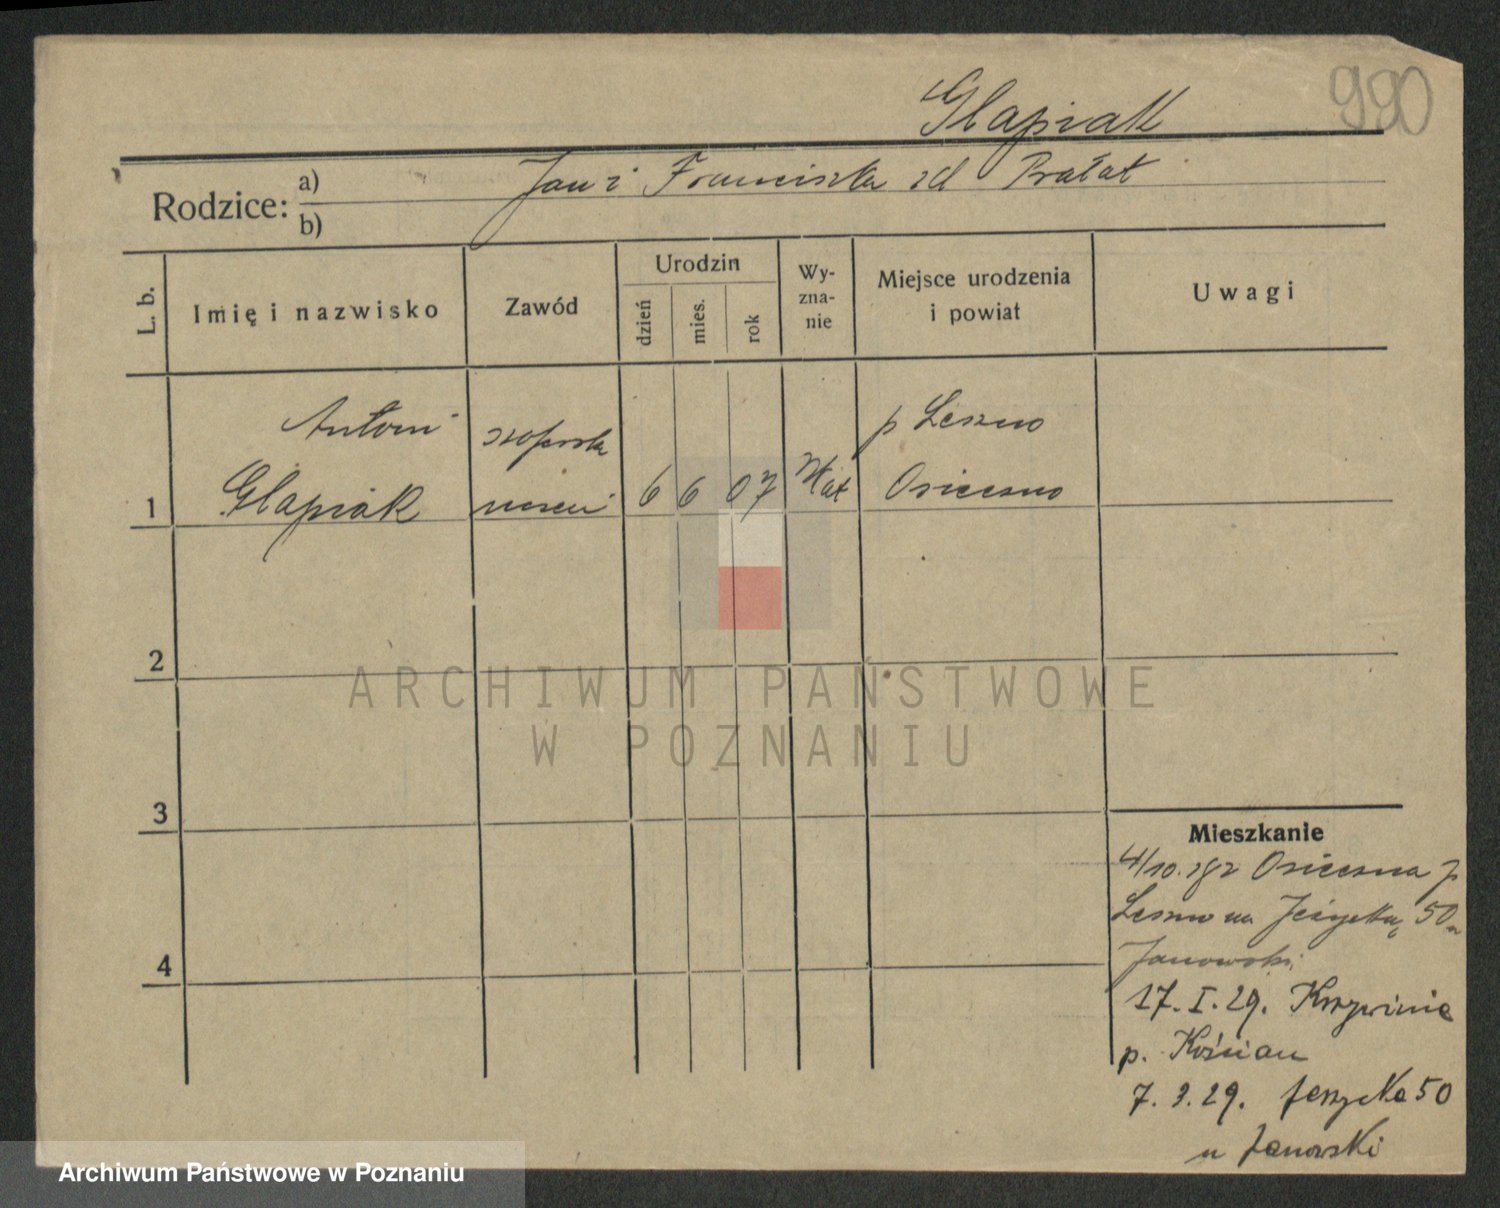 Glapiak
990
Rodzice: a) Jan i Franciszka zd Prałat
b)
L. b.
Imię i nazwisko
Zawód
Urodzin
dzień
mies.
rok
Wy-
zna-
nie
Miejsce urodzenia
i powiat
Uwagi
Antoni
Glapiak
1
6 6 07
p Leszno
Osieczno
2
3
4
ARCHIWUM PAŃSTWOWE
W POZNANIU
Mieszkanie
4/10. 282 Osieczna p
Leszno na Jeżycką 50
Janowski
17. I. 29. Krzywinie
p. Kościan
7. 3. 29. Jeżycka 50
u Janowski
Archiwum Państwowe w Poznaniu